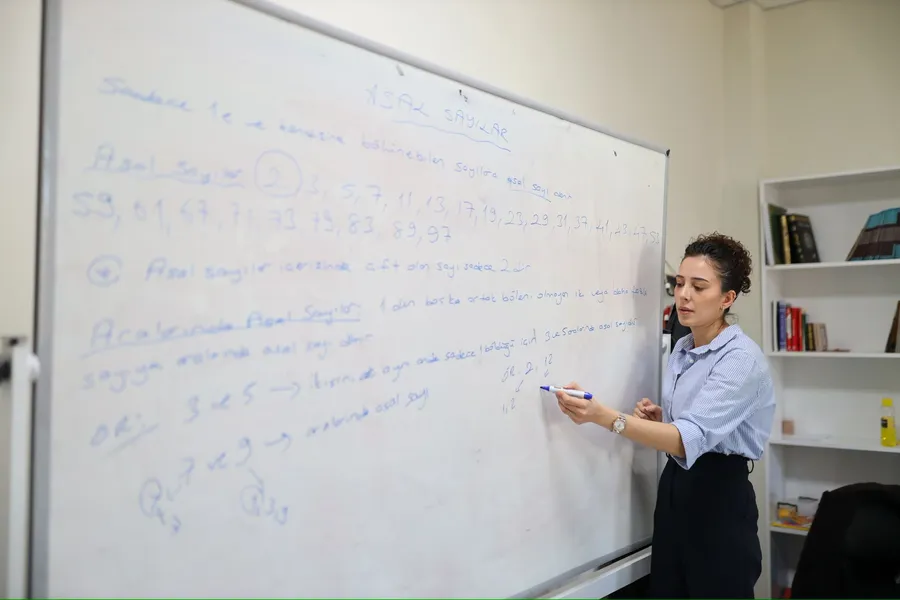 ASAL SAYILAR
Sadece 1e ve kendisine bölünebilen sayılara asal sayı denir
Asal Sayılar 2, 3, 5, 7, 11, 13, 17, 19, 23, 29, 31, 37, 41, 43, 47, 53
59, 61, 67, 71, 73, 79, 83, 89, 97
* Asal sayılar içerisinde çift olan sayı sadece 2 dir
Aralarında Asal Sayılar 1 den başka ortak böleni olmayan iki veya daha fazla
sayıya aralarında asal sayı denir
ÖR: 3 ve 5 → aynı anda sadece 1 böldüğü için 3 ve 5 aralarında asal sayıdır
7 ve 9 → aralarında asal sayı
1, 7
1, 3, 9